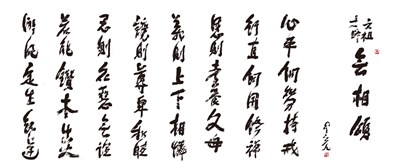 六祖
大師
無相頌
心平何勞持戒
行直何用修禪
恩則孝養父母
義則上下相憐
讓則尊卑和睦
忍則眾惡無喧
若能鑽木出火
淤泥定生紅蓮